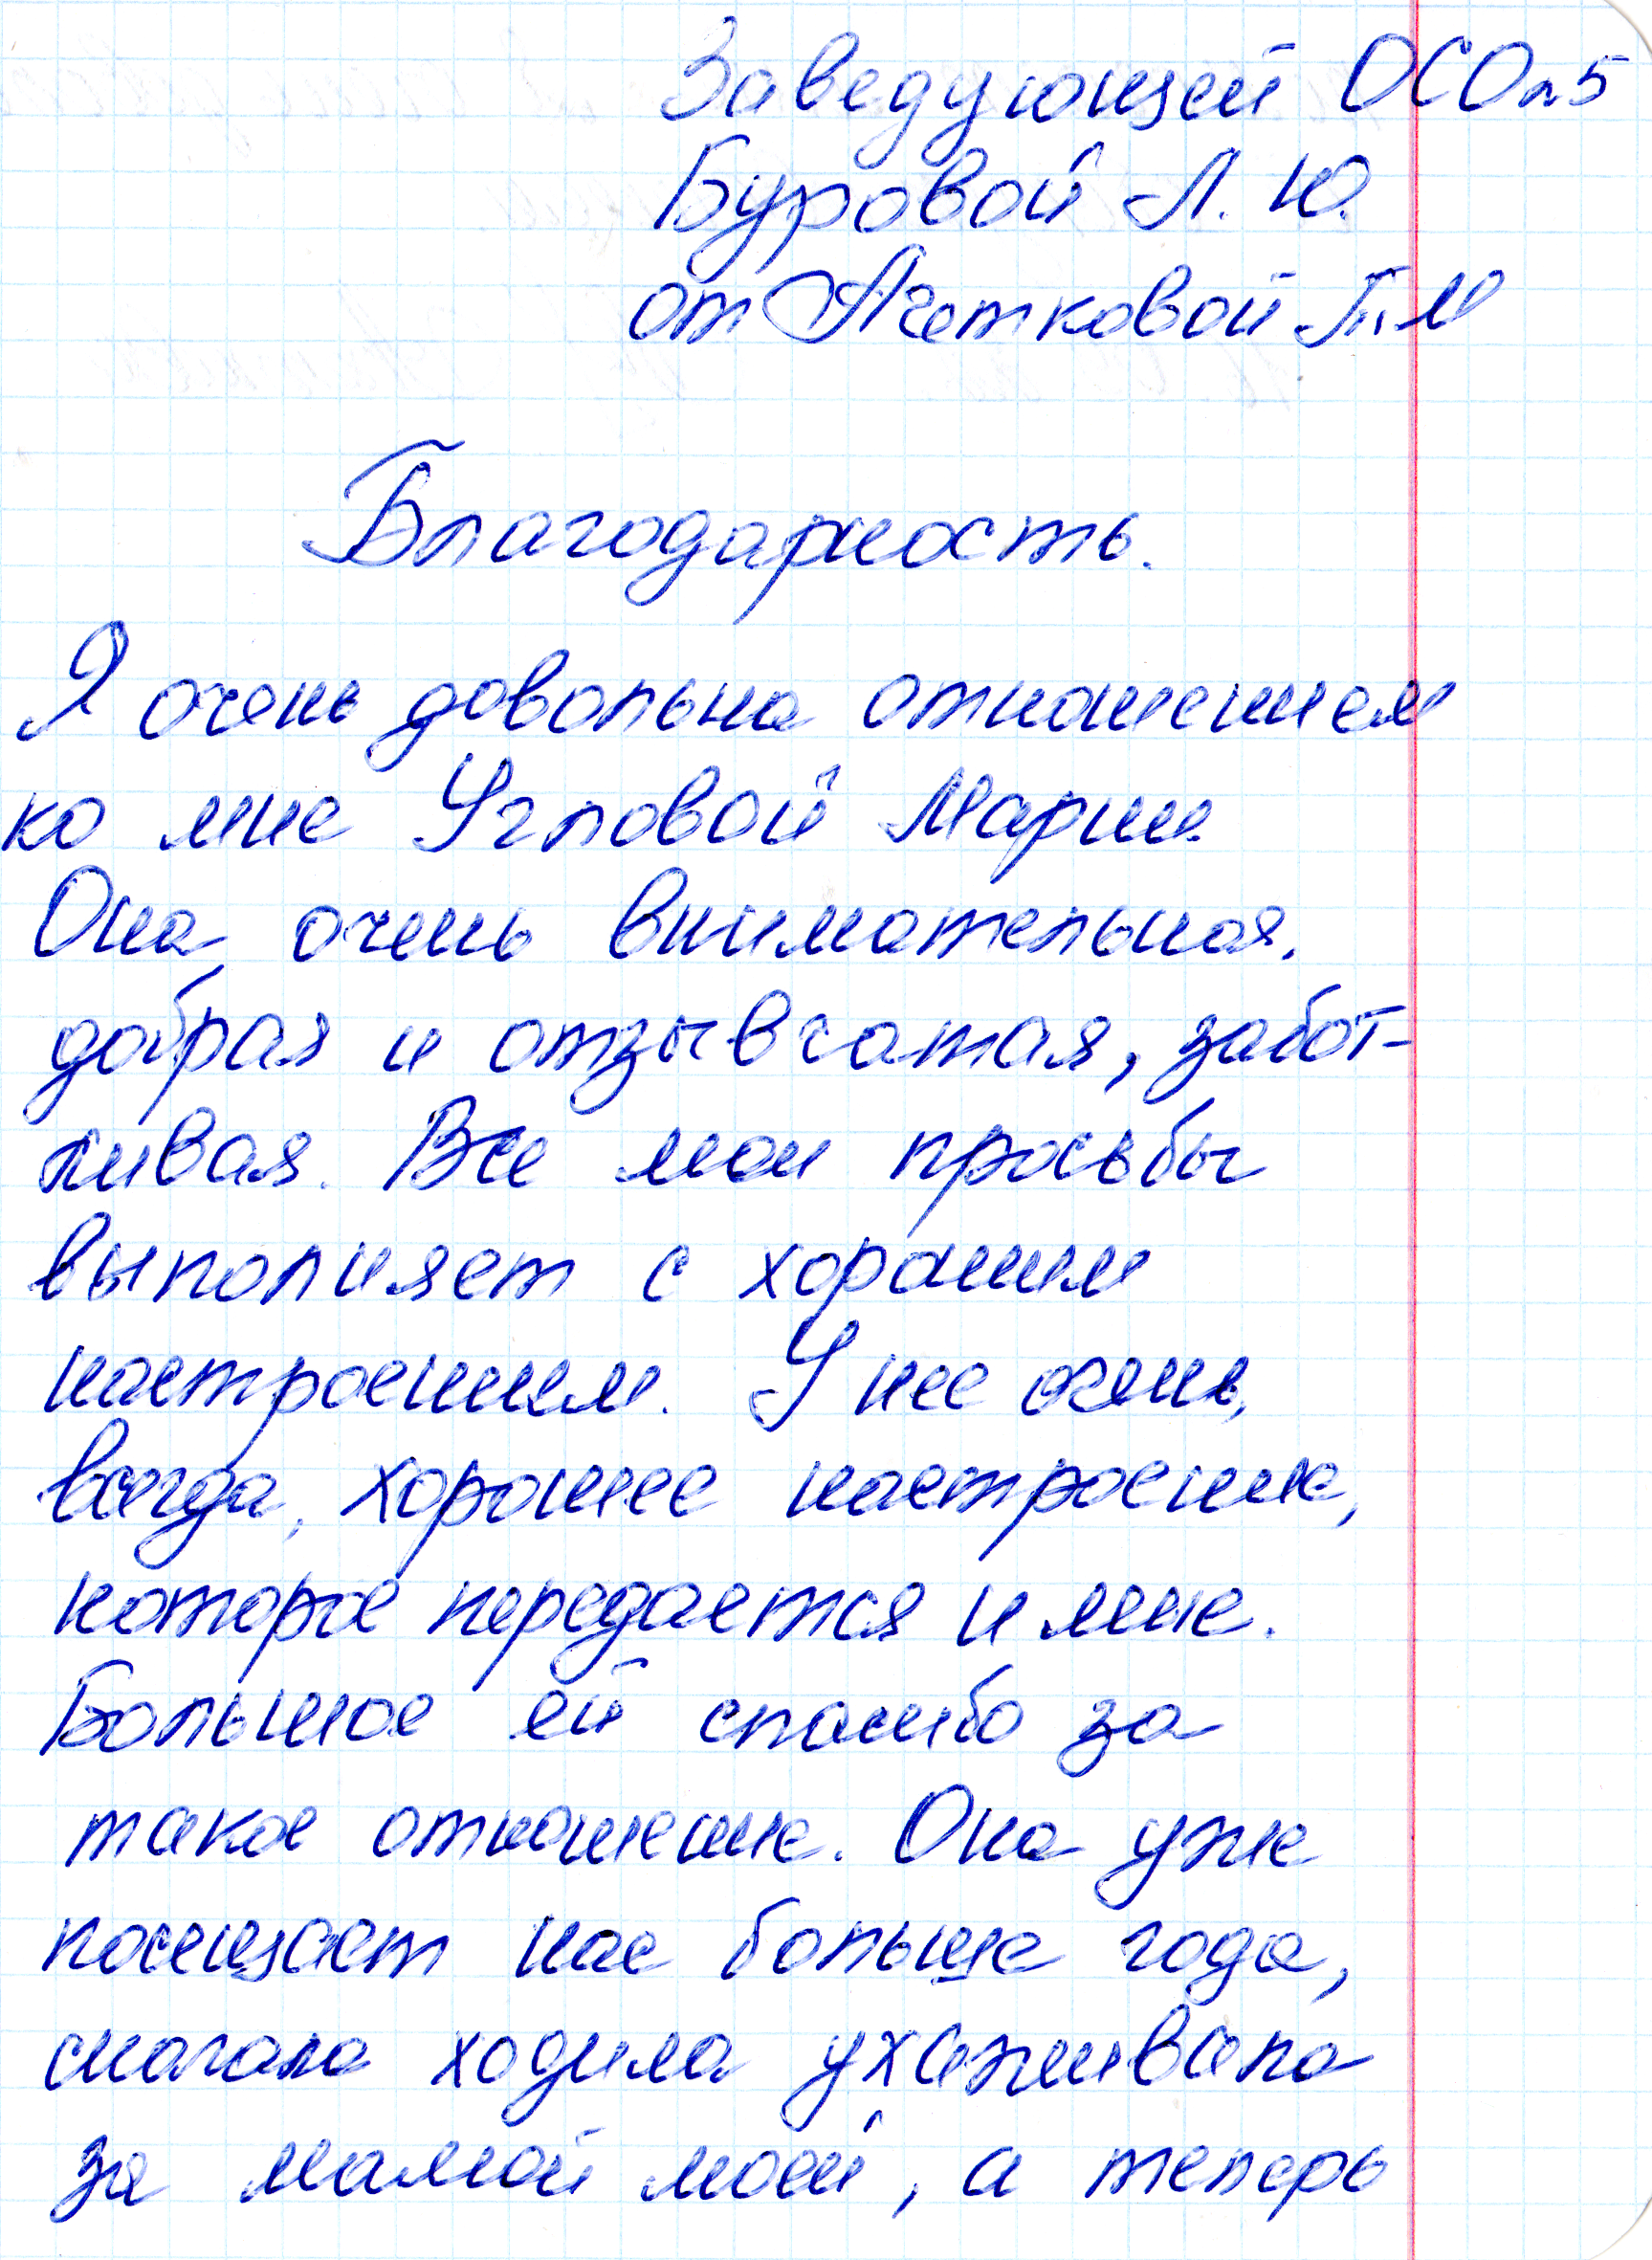 Заведующей ОСО №5
Буровой Л. Ю.
от Ачетковой Т. М
Благодарность.
Я очень довольна отношением
ко мне Угловой Марии.
Она очень внимательная,
добрая и отзывчатая, забот-
ливая. Все мои просьбы
выполняет с хорошим
настроением. У нее очень,
всегда, хорошее настроение,
которое передается и мне.
Большое ей спасибо за
такое отношение. Она уже
посещает нас больше года,
сначала ходила ухаживала
за мамой моей, а теперь